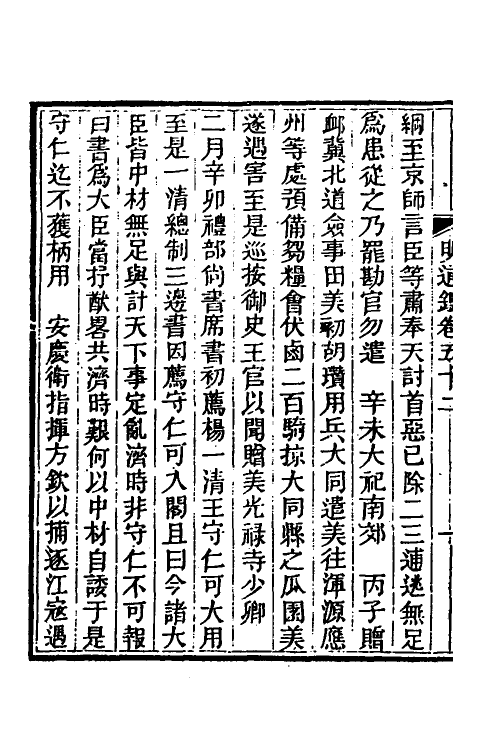 明通鑑卷五十二
綱至京師言臣等肅奉天討首惡已除二三逋逃無足
爲患從之乃罷勘官勿遣　辛未大祀南郊　丙子贈
卹冀北道僉事田美初胡瓚用兵大同遣美往渾源應
州等處預備芻糧會伏鹵二百騎掠大同縣之瓜園美
遂遇害至是巡按御史王官以聞贈美光祿寺少卿
二月辛卯禮部尙書席書初薦楊一清王守仁可大用
至是一清總制三邊書因薦守仁可入閣且曰今諸大
臣皆中材無足與計天下事定亂濟時非守仁不可報
曰書爲大臣當抒猷畧共濟時艱何以中材自諉于是
守仁迄不獲柄用　安慶衛指揮方欽以捕逐江寇遇